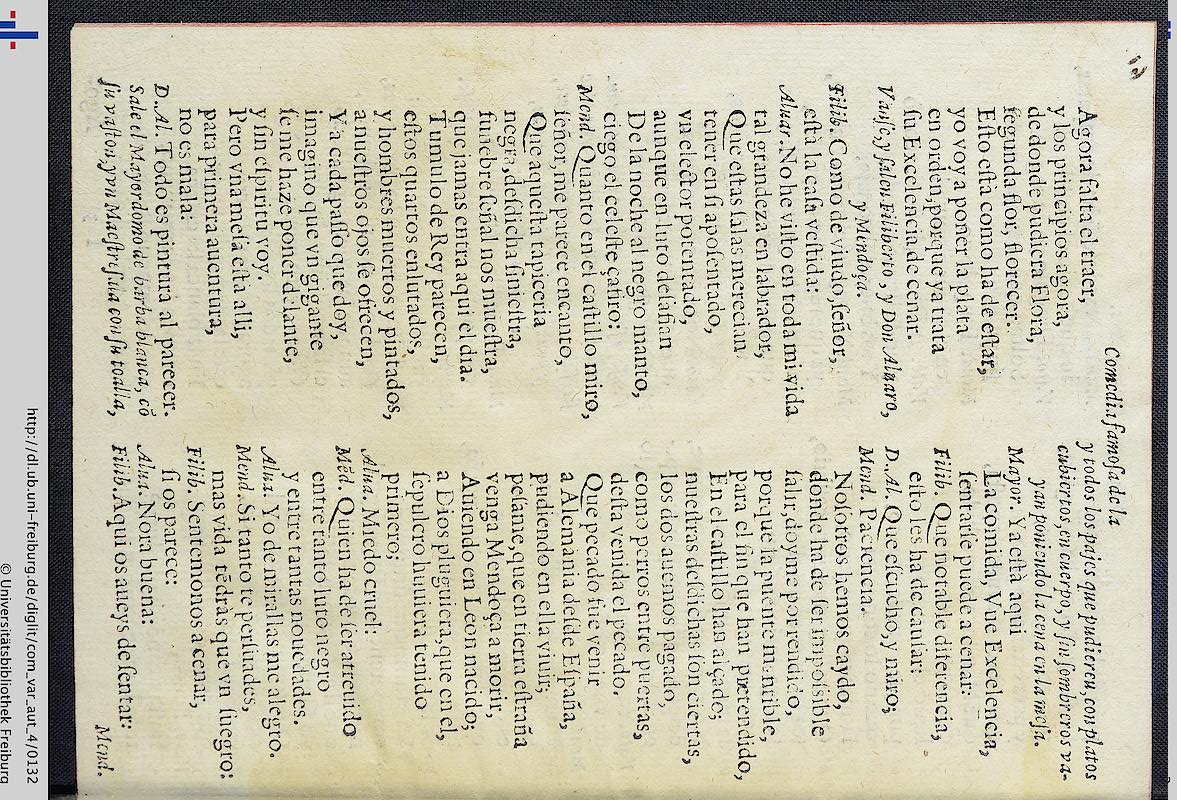 Comedia famosa de la
Agora falta el traer,
y los principios agora,
de donde pudiera Flora,
segunda flor, florecer.
Esto esta como ha de estar,
yo voy a poner la plata
en orden, porque ya trata
su Excelencia de cenar.
Vanse, y salen Filiberto, y Don Aluaro,
y Mendoça.
Filib. Como de viudo, señor,
està la casa vestida:
Aluar. No he visto en toda mi vida
tal grandeza en labrador,
Que estas salas merecian
tener en si aposentado,
vn elector potentado,
aunque en luto desafian
De la noche al negro manto,
ciego el celeste çafiro:
Mend. Quanto en el castillo miro,
señor, me parece encanto,
Que aquesta tapiceria
negra, desdicha sinestra,
funebre señal nos muestra,
que jamas entra aqui el dia.
Tumulo de Rey parecen,
estos quartos enlutados,
y hombres muertos y pintados,
a nuestros ojos se ofrecen,
Ya cada passo que doy,
imagino que vn gigante
se me haze poner delante,
y sin espiritu voy.
Pero vna mesa esta alli,
para primera auentura,
no es mala:
D. Al. Todo es pintura al parecer.
Sale el Mayordomo de barba blanca, cõ
su vaston, y vn Maestresala con su toalla,
y todos los pajes que pudieren, con platos
cubiertos, en cuerpo, y sin sombreros va-
yan poniendo la cena en la mesa.
Mayor. Ya està aqui
La comida, Vue Excelencia,
sentarse puede a cenar:
Filib. Que notable diferencia,
esto les ha de causar:
D. Al. Que escucho, y miro;
Mend. Paciencia.
Nosotros hemos caydo,
donde ha de ser impossible
salir, doyme por rendido,
porque la puente mentible,
para el fin que han pretendido,
En el castillo han alçado;
nuestras desdichas son ciertas,
los dos auemos pagado,
como perros entre puertas,
desta venida el pecado.
Que pecado fue venir
a Alemania desde España,
pudiendo en ella viuir;
pesiane, que en tierra estraña
venga Mendoça a morir,
Auiendo en Leon nacido;
a Dios pluguiera, que en el,
sepulcro huuiera tenido
primero;
Alua. Miedo cruel:
Mẽd. Quien ha de ser atreuido
entre tanto luto negro
y entre tantas nouedades.
Alua. Yo de mirallas me alegro.
Mend. Si tanto te persuades,
mas vida tẽdràs que vn suegro:
Filib. Sentemonos a cenar,
si os parece:
Alua. Nora buena:
Filib. Aqui os aueys de sentar:
Mend.
http://dl.ub.uni-freiburg.de/diglit/com_var_aut_4/0132
© Universitätsbibliothek Freiburg